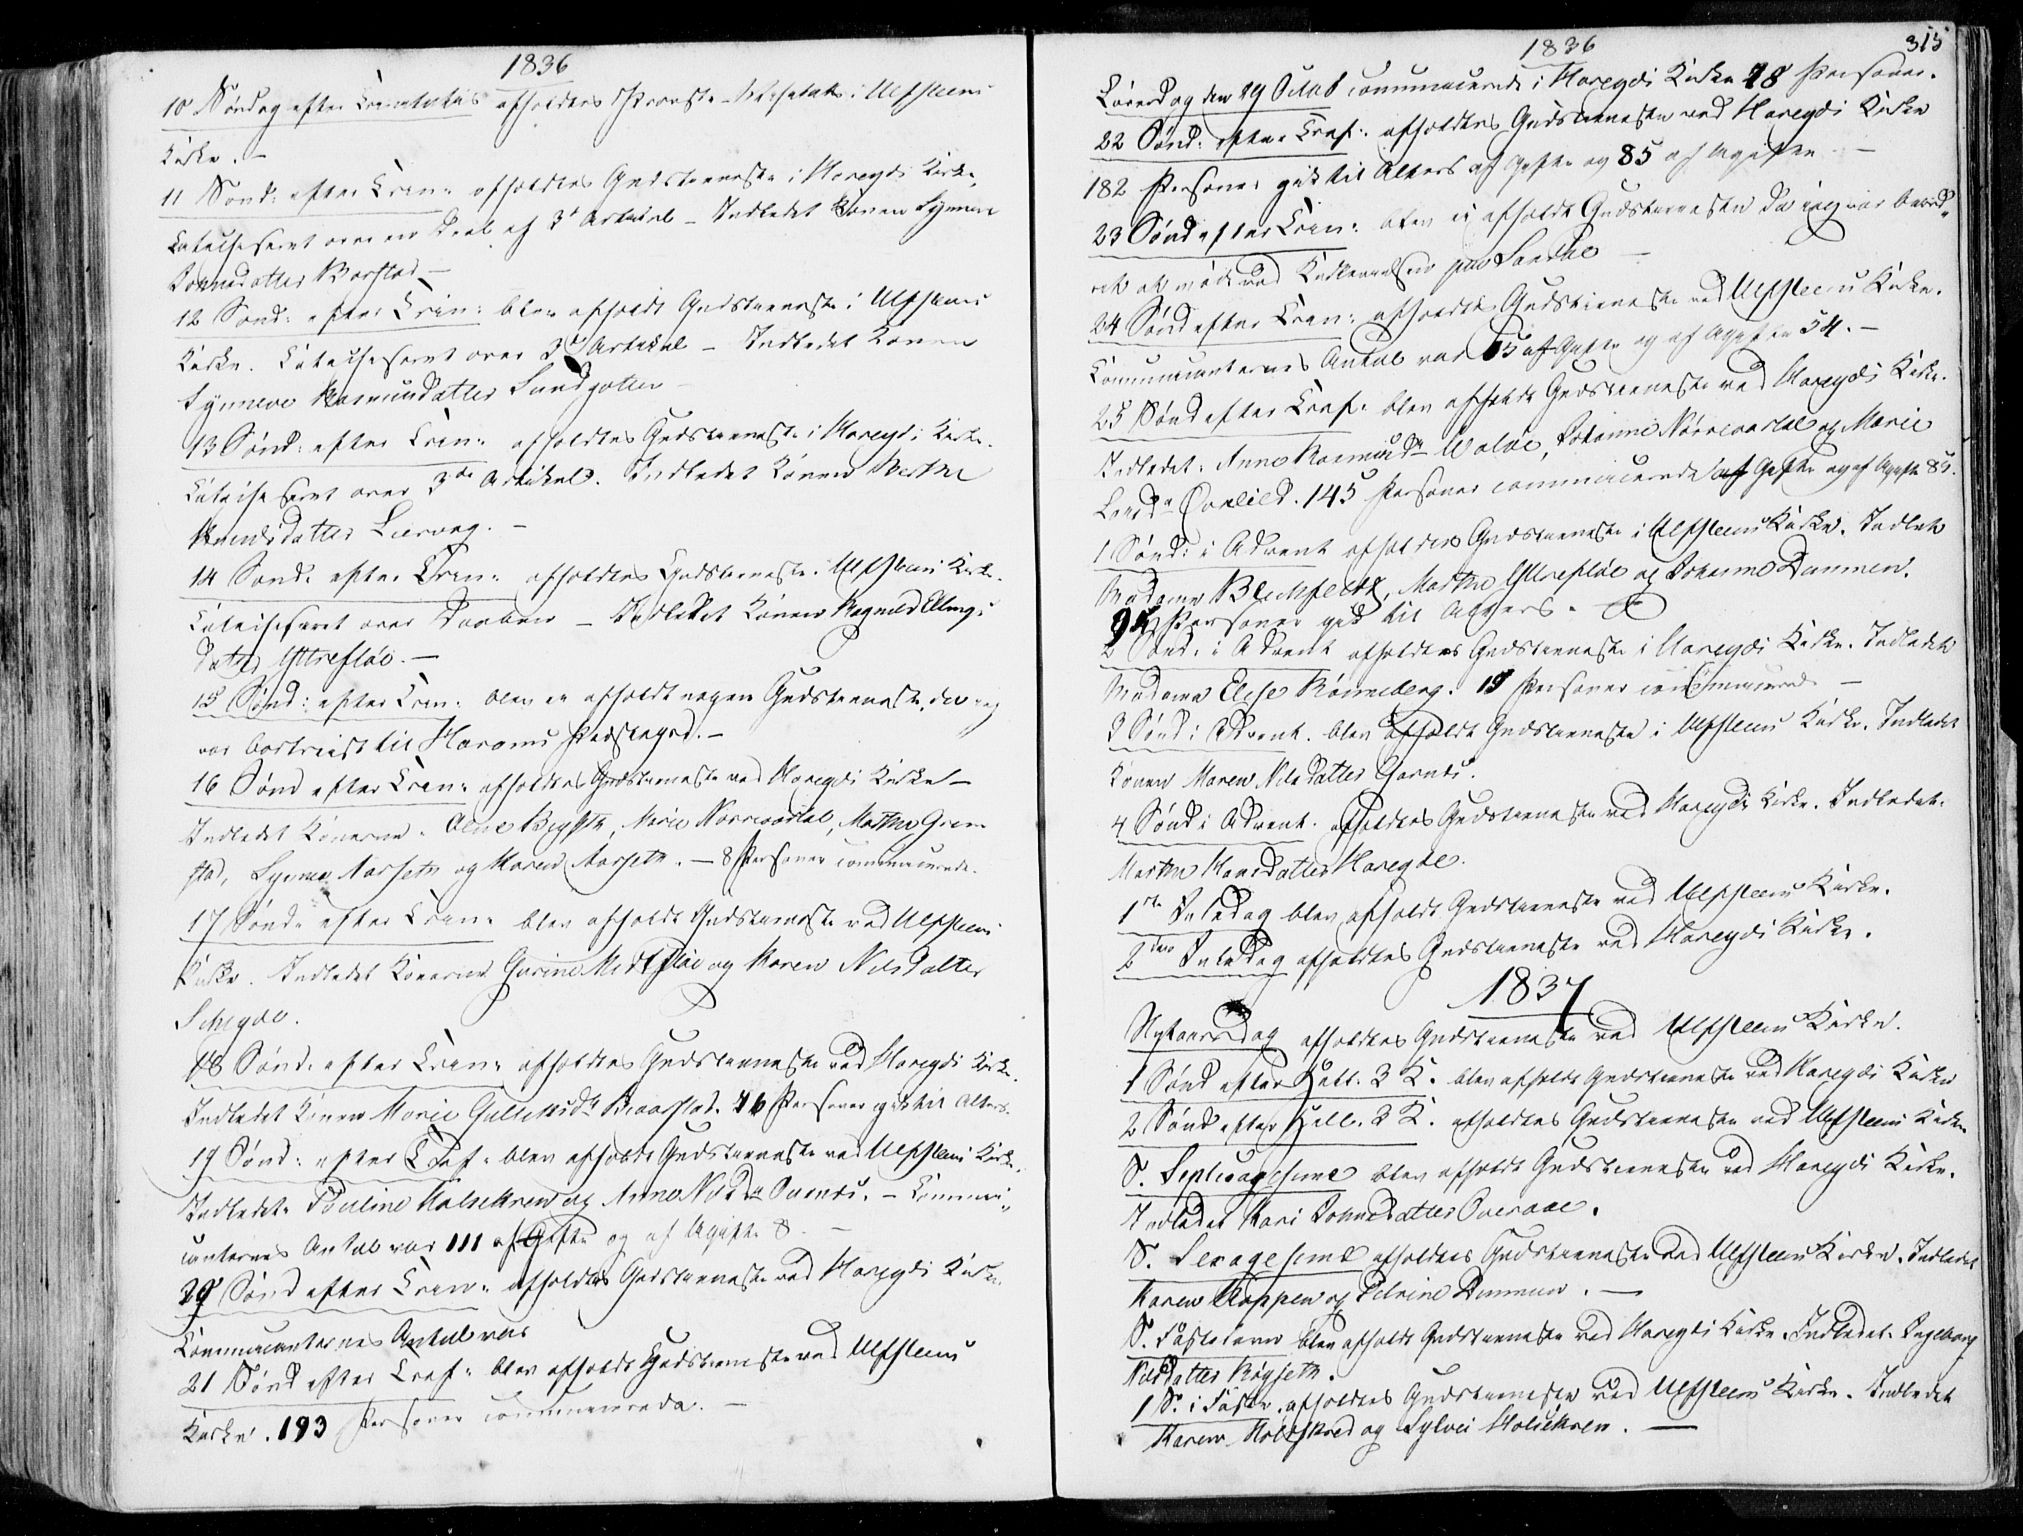 1836
10 Søndag efter Trinitatis afholdtes Provste-Visitats i Ulfsteens
Kirke. –
11 Sønd: efter Trin: afholdtes Gudstieneste i Hareyds Kirke,
Catechiseret over en Deel af 3d Artikel – Indledet Konen Synneve
Johnsdatter Barstad –
12 Sønd: efter Trin: blev afholdt Gudstieneste i Ulfsteens
Kirke. Catechiseret over 3d Artikel – Indledet Konen
Synneve Rasmusdatter Sundgotten –
13 Sønd: efter Trin: afholdtes Gudstieneste i Hareyds Kirke.
Catechiseret over 3de Artikel. Indledet Konen Berthe
Knudsdatter Liavaag. –
14 Sønd: efter Trin: afholdtes Gudstieneste i Ulfsteens Kirke.
Catechiseret over Daaben – Indledet Konen Ragnild Ellings
datter Yttrefløe. –
15 Sønd: efter Trin: blev ei afholdt nogen Gudstieneste, da jeg
var bortreist til Harams Præstegjed. –
16 Sønd efter Trin: afholdtes Gudstieneste ved Hareyds Kirke –
Indledet Konerne: Oline Bigseth, Marie Nørrevartal, Marthe Grim
stad, Synneve Aarseth og Maren Aarseth. – 8 Personer communicerede.
17 Sønd: efter Trin: blev afholdt Gudstieneste ved Ulfsteens
Kirke. Indledet Konerne Gurine Midtfløe og Maren Nilsdatter
18 Sønd: efter Trin: afholdtes Gudstieneste ved Hareyds Kirke.
Indledet Konen Marie Gulliksdr Braastad. 46 Personer gik til Alters.
19 Sønd: efter Tref: blev afholdt Gudstieneste ved Ulfsteens Kirke.
Indledet: Pauline Holsekren og Anne Nilsdr – Commu
nicanternes Antal var 111 af Gifte og af Ugifte 8. –
20 Sønd efter Trin: afholdtes Gudstieneste ved Hareyds Kirke.
Communicanternes Antal var
21 Sønd efter Tref: blev afholdt Gudstieneste ved Ulfsteens
Kirke. 193 Personer communicerede. –
1836 315
Løverdag den 29 Octob communicerede i Hareyds Kirke 78 Personer.
22 Sønd: efter Tref: afholdtes Gudstieneste ved Hareyds Kirke
182 Personer gik til Alters af Gifte og 85 af Ugifte. –
23 Sønd efter Trin: blev ei afholdt Gudstieneste da jeg var beord
ret at møde ved Kirkevielsen paa Sande –
24 Sønd efter Trin: afholdtes Gudstieneste ved Ulfsteens Kirke.
Communicanternes Antal var 65 af Gifte og af Ugifte 54. –
25 Sønd efter Tref: blev afholdt Gudstieneste ved Hareyds Kirke.
Indledet: Anne Rasmusdr Waløe, Johanne Nørrevartal og Marie
Larsdr Overlied. 145 Personer communicerede af Gifte og af Ugifte 85.
1 Sønd: i Advent afholdtes Gudstieneste i Ulfsteens Kirke. Indledt
Madame Blichfeldt, Marthe Yttrefløe og Johanne Dimmen.
94 Personer gik til Alters. –
2 Sønd: i Advent afholdtes Gudstieneste i Hareyds Kirke. Indledet
Madame Elise Rønneberg. 19 Personer communicerede –
3 Sønd: i Advent. blev afholdt Gudstieneste i Ulfsteens Kirke. Indledet
Konen Maren Nilsdatter Garnes.
4 Sønd i Advent. afholdtes Gudstieneste ved Hareyds Kirke. Indledet.
Marthe Hansdatter Hareyde.
1ste Juledag blev afholdt Gudstieneste ved Ulfsteens Kirke.
2den Juledag afholdtes Gudstieneste ved Hareyds Kirke.
1837
Nytaarsdag afholdtes Gudstieneste ved Ulfsteens Kirke.
1 Sønd efter Hell. 3 K. blev afholdt Gudstieneste ved Hareyds Kirke
2 Sønd efter Hell. 3 K. afholdtes Gudstieneste ved Ulfsteens Kirke
S. Septuagesima blev afholdt Gudstieneste ved Hareyds Kirke.
Indledet Kari Johnsdatter Overaae.
S. Sexagesima afholdtes Gudstieneste ved Ulfsteens Kirke. Indledet
Karen Knappen og Petrine Dimmen. –
S. Fastelavn blev afholdt Gudstieneste ved Hareyds Kirke. Indledet Ingeborg
Nilsdatter Røyseth.
1 S. i Faste. afholdtes Gudstieneste ved Ulfsteens Kirke. Indledet
Karen og Sylvei Holsekren. –